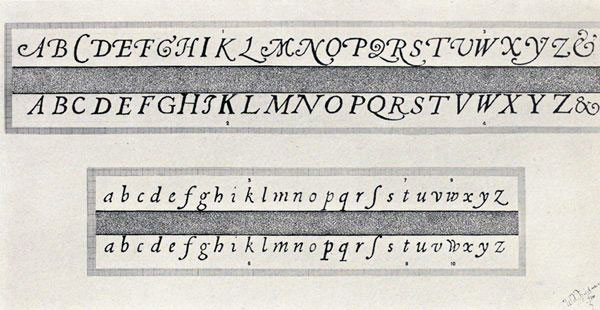 1 3
A B C D E F G H I K L M N O P Q R S T U W X Y Z &
A B C D E F G H J K L M N O P Q R S T V W X Y Z &
2 4
5 7 9
a b c d e f g h i k l m n o p q r ſ s t u v w x y z
a b c d e f g h i k l m n o p q r ſ s t u v w x y z
6 8 10